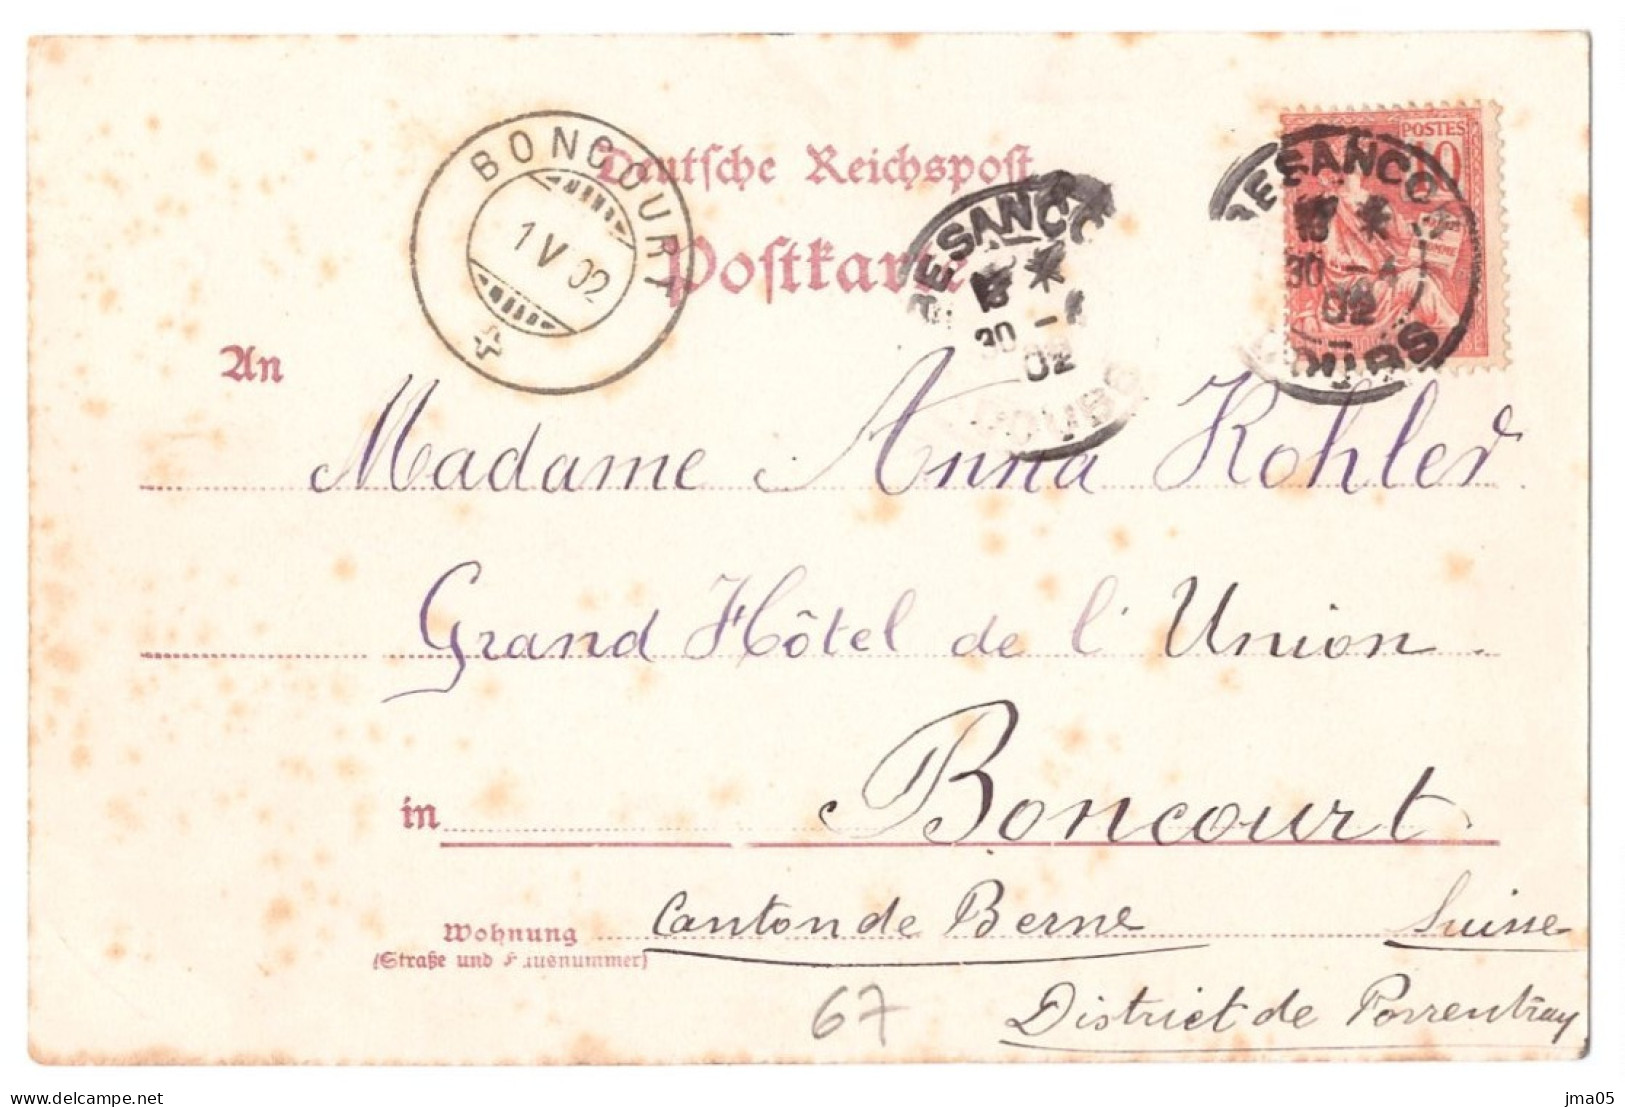 BONCOURT
1 V 02
Deutsche Reichspost
Postkarte
BESANCON
30 -4
02
DOUBS
POSTES
10
BESANCON
30 -4
02
DOUBS
An
Madame Anna Kohler
Grand Hôtel de l'Union
in Boncourt
Wohnung Canton de Berne Suisse
(Straße und Hausnummer)
67 District de Porrentruy
delcampe.net
jma05